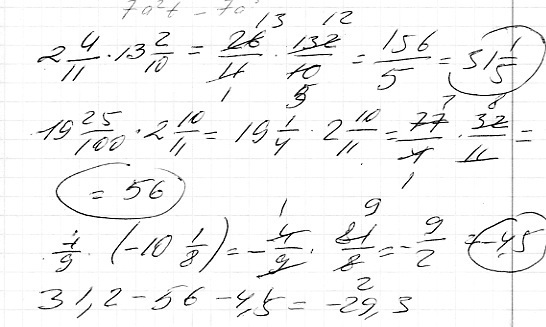 7a²t - 7a
13 12
2 4/11 · 13 2/10 = 26/11 · 132/10 = 156/5 = 31 1/5
1 5
19 25/100 · 2 10/11 = 19 1/4 · 2 10/11 = 77/4 · 32/11 =
7 8
1
= 56
1 9
4/9 · (-10 1/8) = - 4/9 · 81/8 = - 9/2 = -4,5
2
31,2 - 56 - 4,5 = -29,3